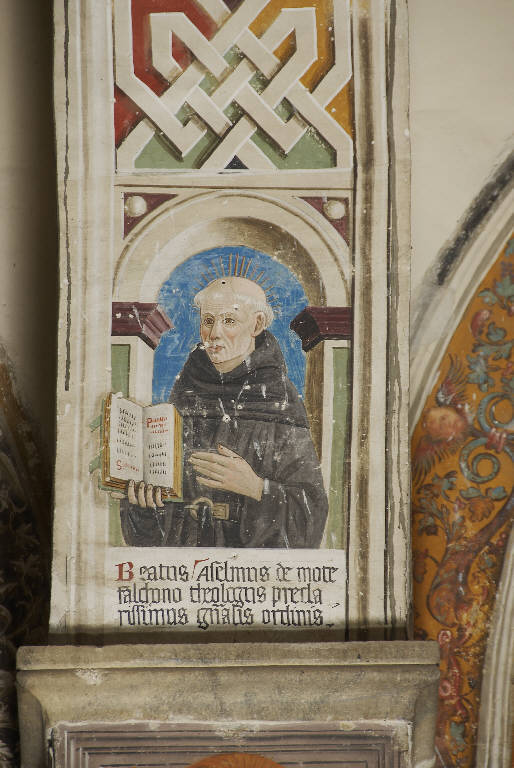 Beatus Aſelmus de mõte
falchono theologus precla
riſſimus gñalis ordinis